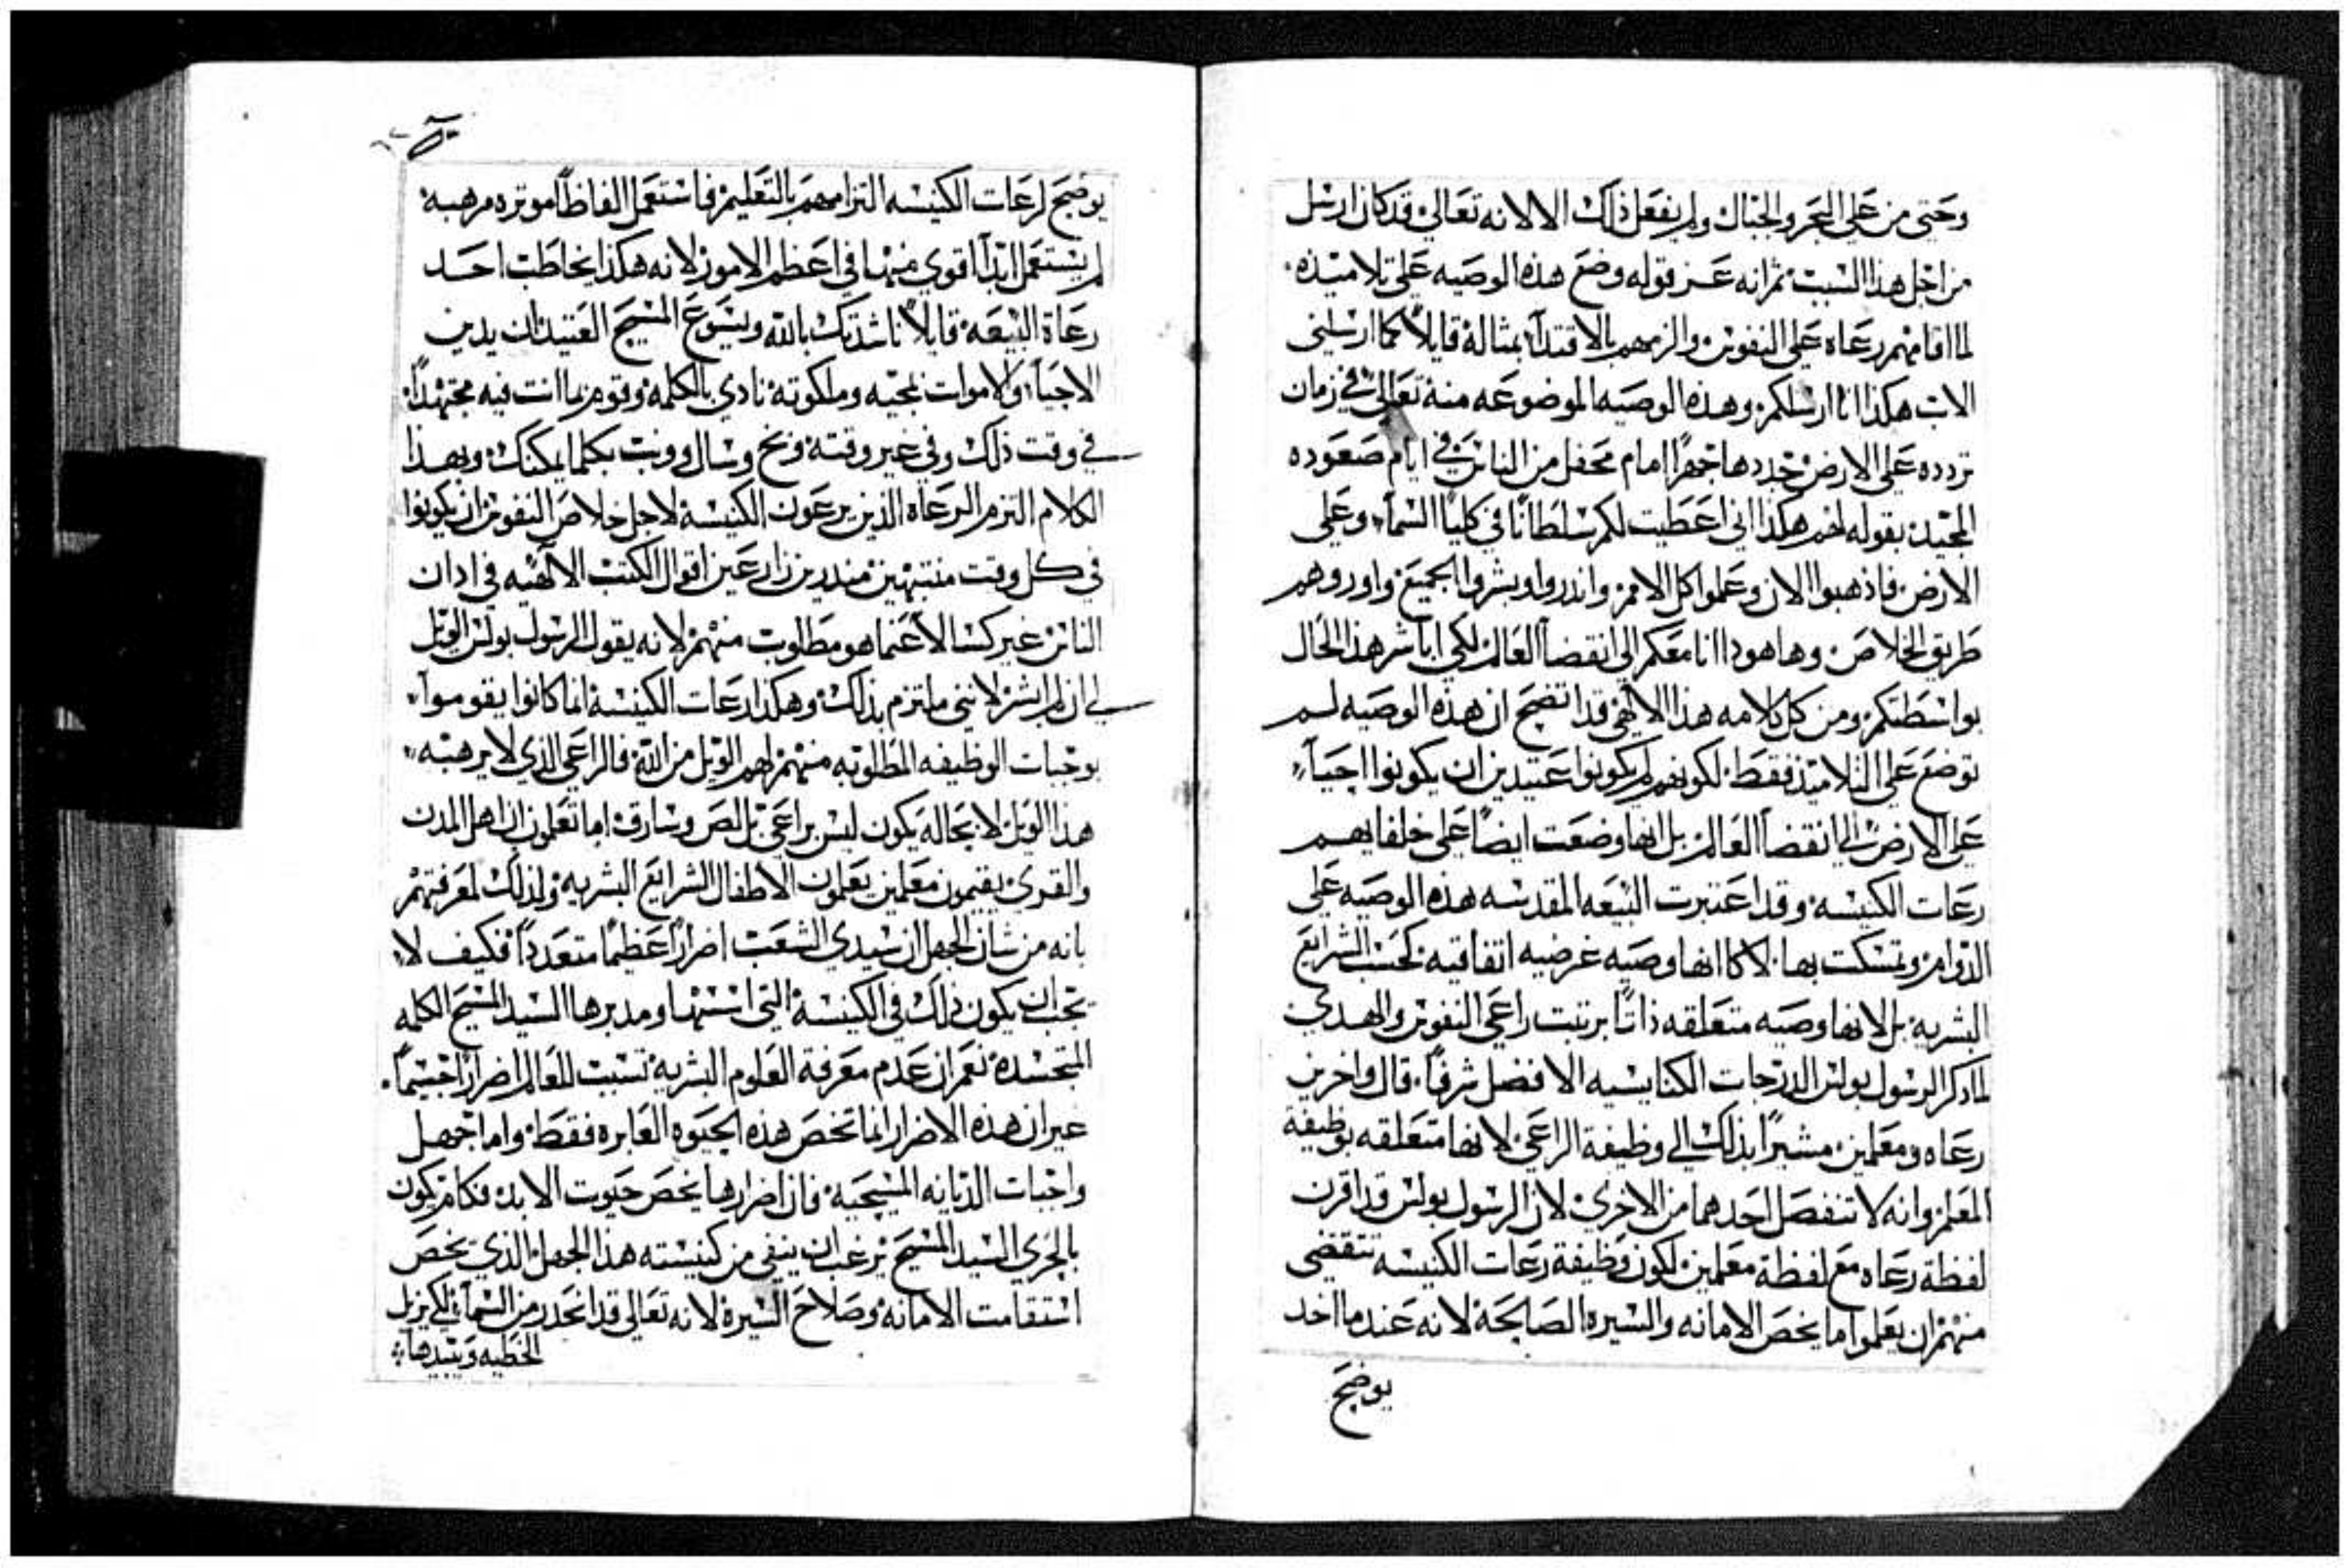 وحتي من علي البحر والجبال ولم يفعل ذلك الا لانه تعالي قد كان ارسل
من اجل هذا السبب ثم انه عز قوله وضع هذه الوصيه علي تلاميذه
لما اقامهم رعاه علي النفوس والزمهم بالاقتدآ بمثاله قايلاً كما ارسلني
الاب هكذا انا ارسلكم وهذه الوصيه الموضوعه منه تعالي في زمان
تردده علي الارض جددها جهراً امام محفل من الناس في ايام صعوده
المجيد بقوله لهم هكذا اني اعطيت لكم سلطانًا في كليا السمآ وعلي
الارض فاذهبوا الان وعلموا كل الامم واندروا وبشروا الجميع واوروهم
طريق الخلاص وها هودا انا معكم الي انقضآ العالم لكي اباشر هذا الحال
بواسطتكم ومن كل كلامه هذا الالاهي قد اتضح ان هذه الوصيه لم
توضع علي التلاميذ فقط لكونهم لم يكونوا عتيدين ان يكونوا احيآ
علي الارض الي انقضآ العالم بل انها وضعت ايضاً علي خلفايهم
رعات الكنيسه وقد اعتبرت البيعه المقدسه هذه الوصيه علي
الدوام وتمسكت بها لا كانها وصيه عرضيه اتفاقيه كحسب الشرايع
البشريه بل لانها وصيه متعلقه ذاتًا برتبت راعي النفوس والهدي
لما ذكر الرسول بولس الدرجات الكنايسيه الافضل شرفًا قال واخرين
رعاه ومعلمين مشيرًا بذلك الي وظيفة الراعي لانها متعلقه بوظيفة
المعلم وانه لا تنفصل احدهما من الاخري لان الرسول بولس قد اقرن
لفظة رعاه مع لفظة معلمين لكون وظيفة رعات الكنيسه تقتضي
منهم ان يعلموا ما يخص الامانه والسيره الصالحة لانه عندما اخد
يوضح
يوضح لرعات الكنيسه التزامهم بالتعليم فاستعمل الفاظاً موتره مرهبه
لم يستعمل ابدآ اقوي منها في اعظم الامور لانه هكذا يخاطب احد
رعاة البيعه قايلاً ناشدتك بالله ويسوع المسيح العتيد ان يدين
الاحيآ والاموات بمجيه وملكوته نادي بالكلمه وقوم بما انت فيه مجتهداً
في وقت ذلك وفي غير وقته وبخ وسال ووبت بكلما يمكنك وبهذا
الكلام التزم الرعاه الذين يرعون الكنيسة لاجل خلاص النفوس ان يكونوا
في كل وقت منتبهين منذرين زارعين اقوال الكتب الالاهيه في ادان
الناس غير كسالا عما هو مطلوب منهم لانه يقول الرسول بولس الويل
لي ان لم ابشر لانني ملتزم بذلك وهكذا رعات الكنيسة اذا ما كانوا يقوموا
بوجبات الوظيفه المطلوبه منهم لهم الويل من الله فالراعي الذي لا يرهبه
هذا الويل لا محاله يكون ليس براعي بل لص وسارق اما تعلمون ان اهل المدن
والقري يقيمون معلمين يعلمون الاطفال الشرايع البشريه ولذلك لمعرفتهم
بانه من شان الجهل ان يسدي الشعب اضرارًا عظيمًا متعددًا فكيف لا
يجب ان يكون ذلك في الكنيسة التي اسسها ومدبرها السيد المسيح الكلمه
المتجسده نعم ان عدم معرفة العلوم البشريه تسبب للعالم اضرارًا جسيمًا
غير ان هذه الاضرار انما تخص هذه الحيوه العابره فقط واما جهل
واجبات الديانه المسيحيه فان اضرارها يخص حيوت الابد فكام يكون
بالحري السيد المسيح يرغب ان ينفي من كنيسته هذا الجهل الذي يخص
استقامت الامانه وصلاح السيره لانه تعالي قد انحدر من السمآ لكي يزيل
الخطيه ويبيدها